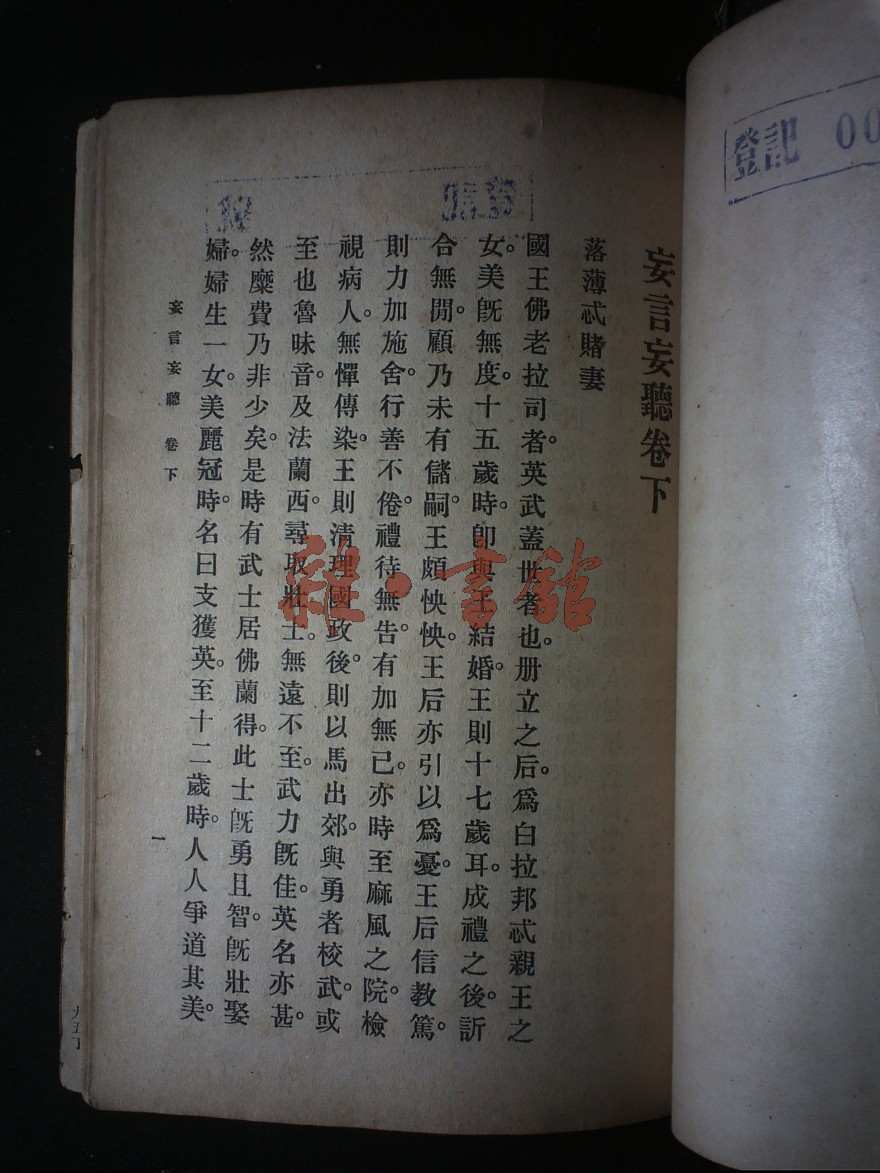 登記 00
妄言妄聽卷下
落薄忒賭妻
國王佛老拉司者英武蓋世者也。册立之后。爲白拉邦忒親王之
女。美旣無度。十五歲時。卽與王結婚。王則十七歲耳。成禮之後。訢
合無閒。顧乃未有儲嗣。王頗怏怏。王后亦引以爲憂。王后信教篤。
則力加施舍。行善不倦。禮待無告。有加無已。亦時至麻風之院。檢
視病人。無憚傳染。王則清理國政後。則以馬出郊。與勇者校武。或
至也魯昧音。及法蘭西。尋取壯士。無遠不至。武力旣佳。英名亦甚。
然糜費乃非少矣。是時有武士居佛蘭得。此士旣勇且智。旣壯娶
婦。婦生一女。美麗冠時。名曰支獲英。至十二歲時。人人爭道其美。
妄言妄聽 卷下
一
雜·書館